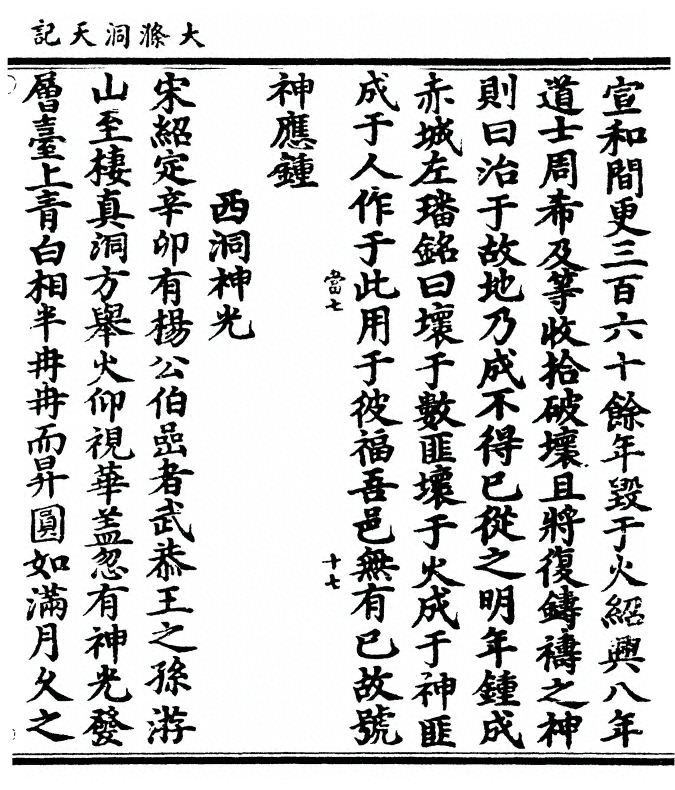 大滌洞天記
宣和間更三百六十餘年毀于火紹興八年
道士周希及等收拾破壞且將復鑄禱之神
則曰治于故地乃成不得已從之明年鐘成
赤城左璠銘曰壞于數匪壞于火成于神匪
成于人作于此用于彼福吾邑無有已故號
當七
十七
神應鍾
西洞神光
宋紹定辛卯有楊公伯嵒者武恭王之孫游
山至棲真洞方舉火仰視華蓋忽有神光發
層臺上青白相半冉冉而昇圓如滿月久之